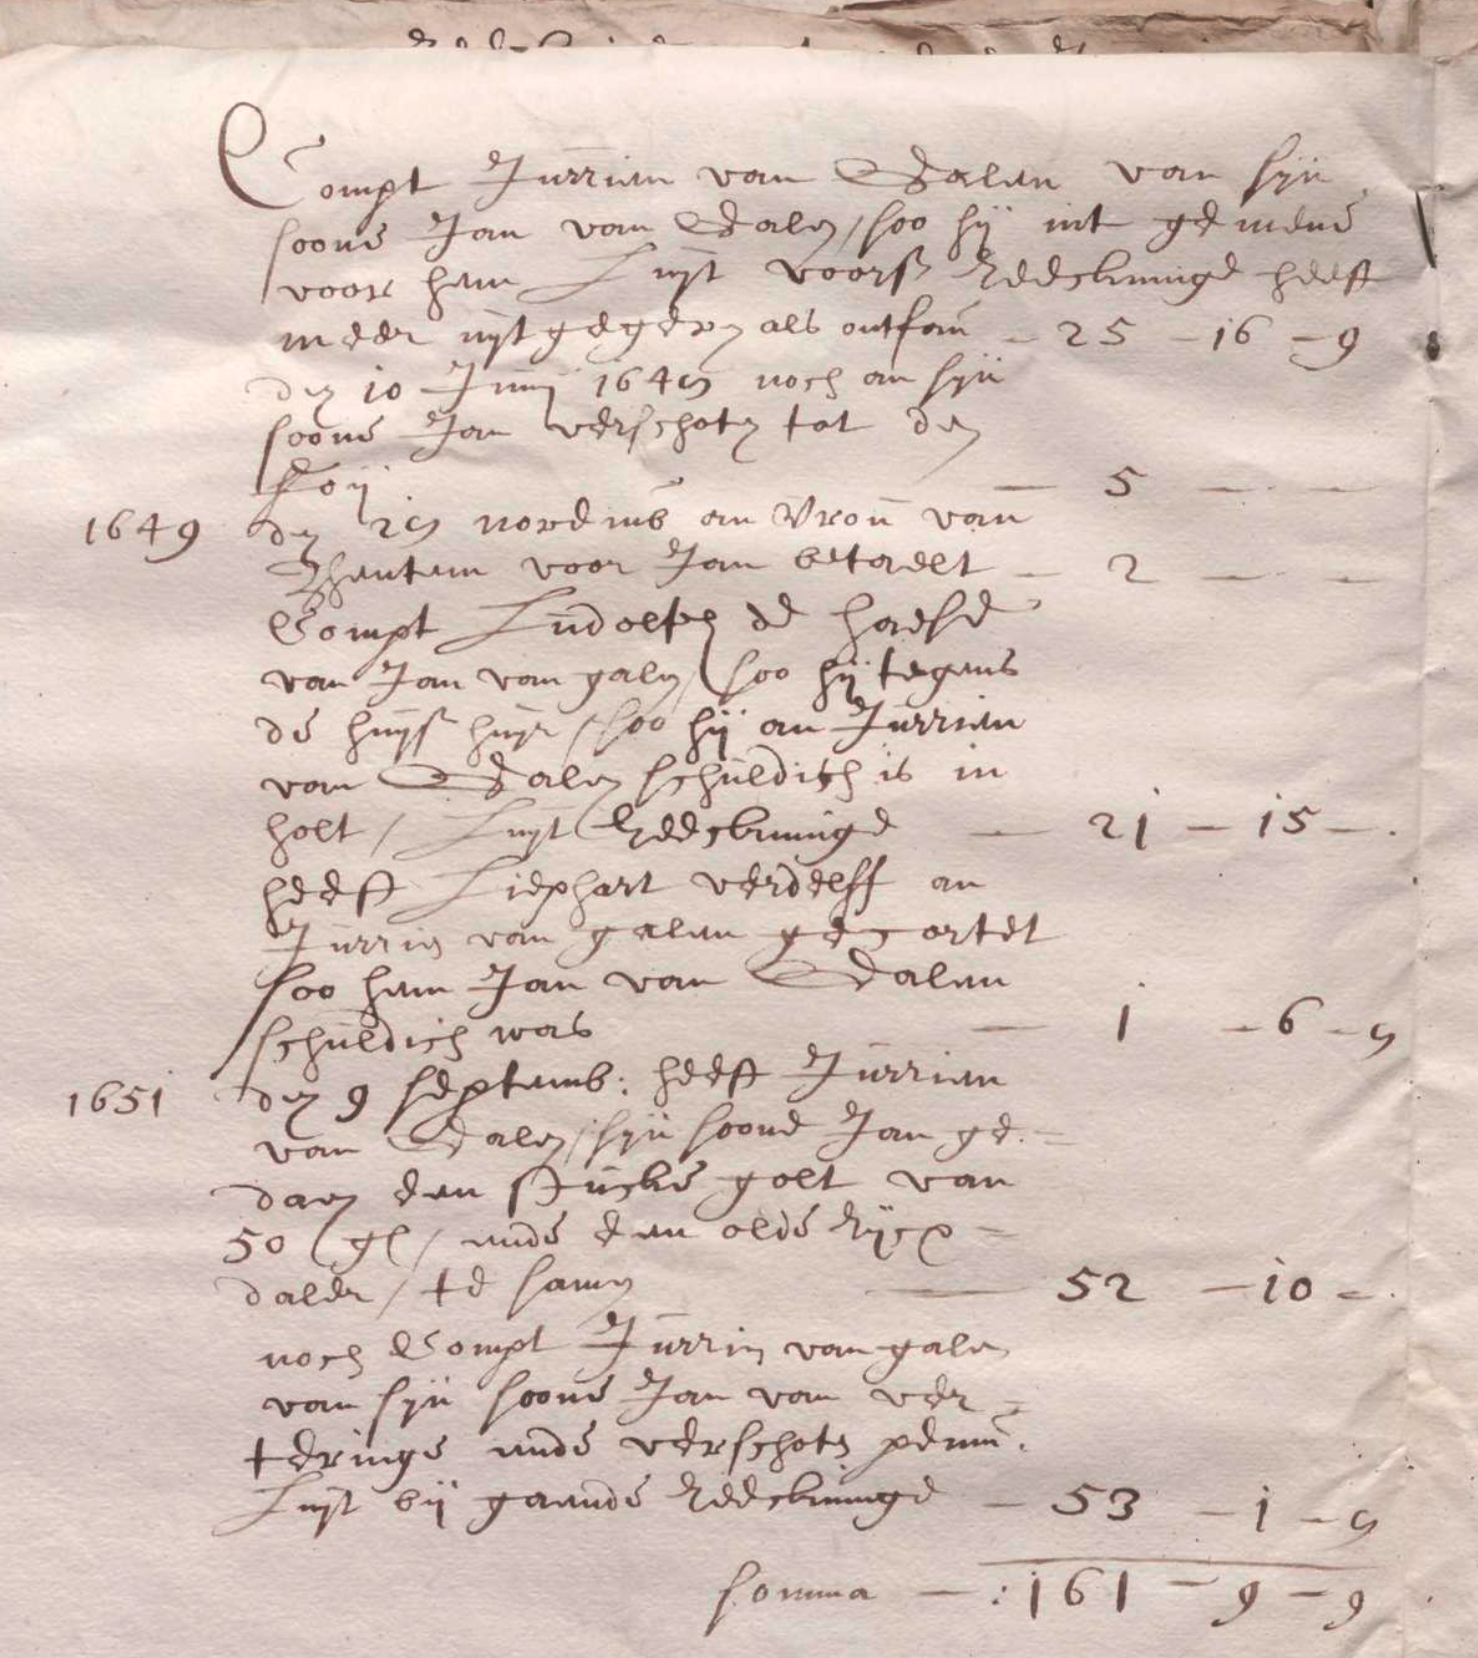 Compt Jurrien van Galen van sijn
soone Jan van Galen / soo hij int gemene
voor hem Luijt voorss Reeckninge heeft
meer uijtgegeven als ontfan – 25 – 16 – 9
den 10 Junij 1649 noch an sijn
soone Jan verschoten tot den
– 5 – –
1649 den 29 novemb an Vrou van
voor Jan betaelt – 2 – –
Compt Ludolph de Haese
van Jan van galen / soo hij tegens
de huijs huijr / soo hij an Jurrien
van Galen schuldich is in
holt / Luijt Reeckninge – 21 – 15 –
heeft verdelff an
Jurrien van galen gecortet
soo hem Jan van Galen
schuldich was – 1 – 6 – 9
1651 den 9 septemb: heeft Jurrien
van Galen / sijn soone Jan ge=
daen een stucke golt van
50 gl / unde een olde Rijcx=
daler / te samen – 52 – 10 –
noch Compt Jurrien van galen
van sijn soone Jan van ver=
teringe unde verschoten penn.
Luijt bij gaende Reeckninge – 53 – 1 – 9
somma – : 161 – 9 – 9